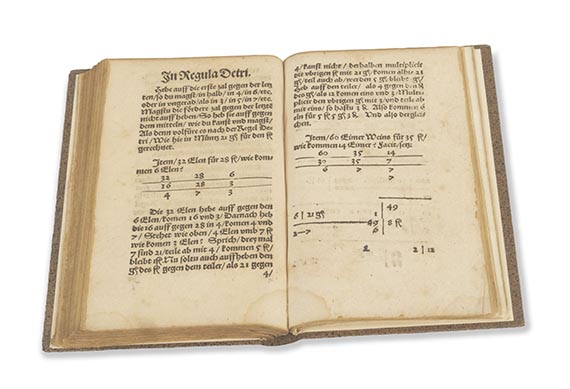 In Regula Detri.
Hebe auff die erste zal gegen der letz
ten/so du magst/in halb/in 4/in 6/etc.
oder in ungerad/als in 3/in 5/in 7/etc.
Magstu die fördere zal gegen der letzte
nicht auffheben/So heb sie auff gegen
dem mitteln/wie du kanst und magst/
Als denn volfüre es nach der Regel De
tri/Wie hie in Müntz 21 gß für den fl
gerechnet.
Item/32 Elen für 28 fl/wie kom
men 6 Elen?
32 28 6
16 28 3
4 7 3
Die 32 Elen hebe auff gegen den
6 Elen/komen 16 und 3/Darnach heb
die 16 auff gegen 28 in 4/komen 4 und
7/Stehet wie oben/4 Elen umb 7 fl
wie komen 3 Elen? Sprich/drey mal
7 sind 21/teile ab mit 4/kommen 5 fl/
bleibt 1fl. Nu soltu auch auffheben den
gß des fl gegen dem teiler/als 21 gegen
4/
4/kanst nicht/derhalben multiplicir
die ubrigen fl mit 21 gß/komen alhie 21
gß/teil auch ab/werden 5 gß/bleibt gß/
Heb auff den teiler/als 4 gegen den ₰
des gß/als 12 komen eins und 3/Multi-
plicir den ubrigen gß mit 3/und teile ab
mit eins/so hastu 3 ₰. Also komen 6
eln für 5 fl 5 gß 3 ₰. Und also dergleis
chen.
Item/60 Eimer Weins für 35 fl/
wie kommen 14 Eimer? Facit/setz:
60 35 14
30 35 7
6 7 7
49
6 | 21 gß 1
49 | 8 fl
2—7 6
2 2 | 12